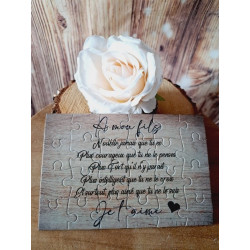 A mon fils
N'oublie jamais que tu es
Plus courageux que tu ne le penses
Plus Fort qu'il n'y parait
Plus intelligent que tu ne le crois
Et surtout plus aimé que tu ne le sais
Je t'aime